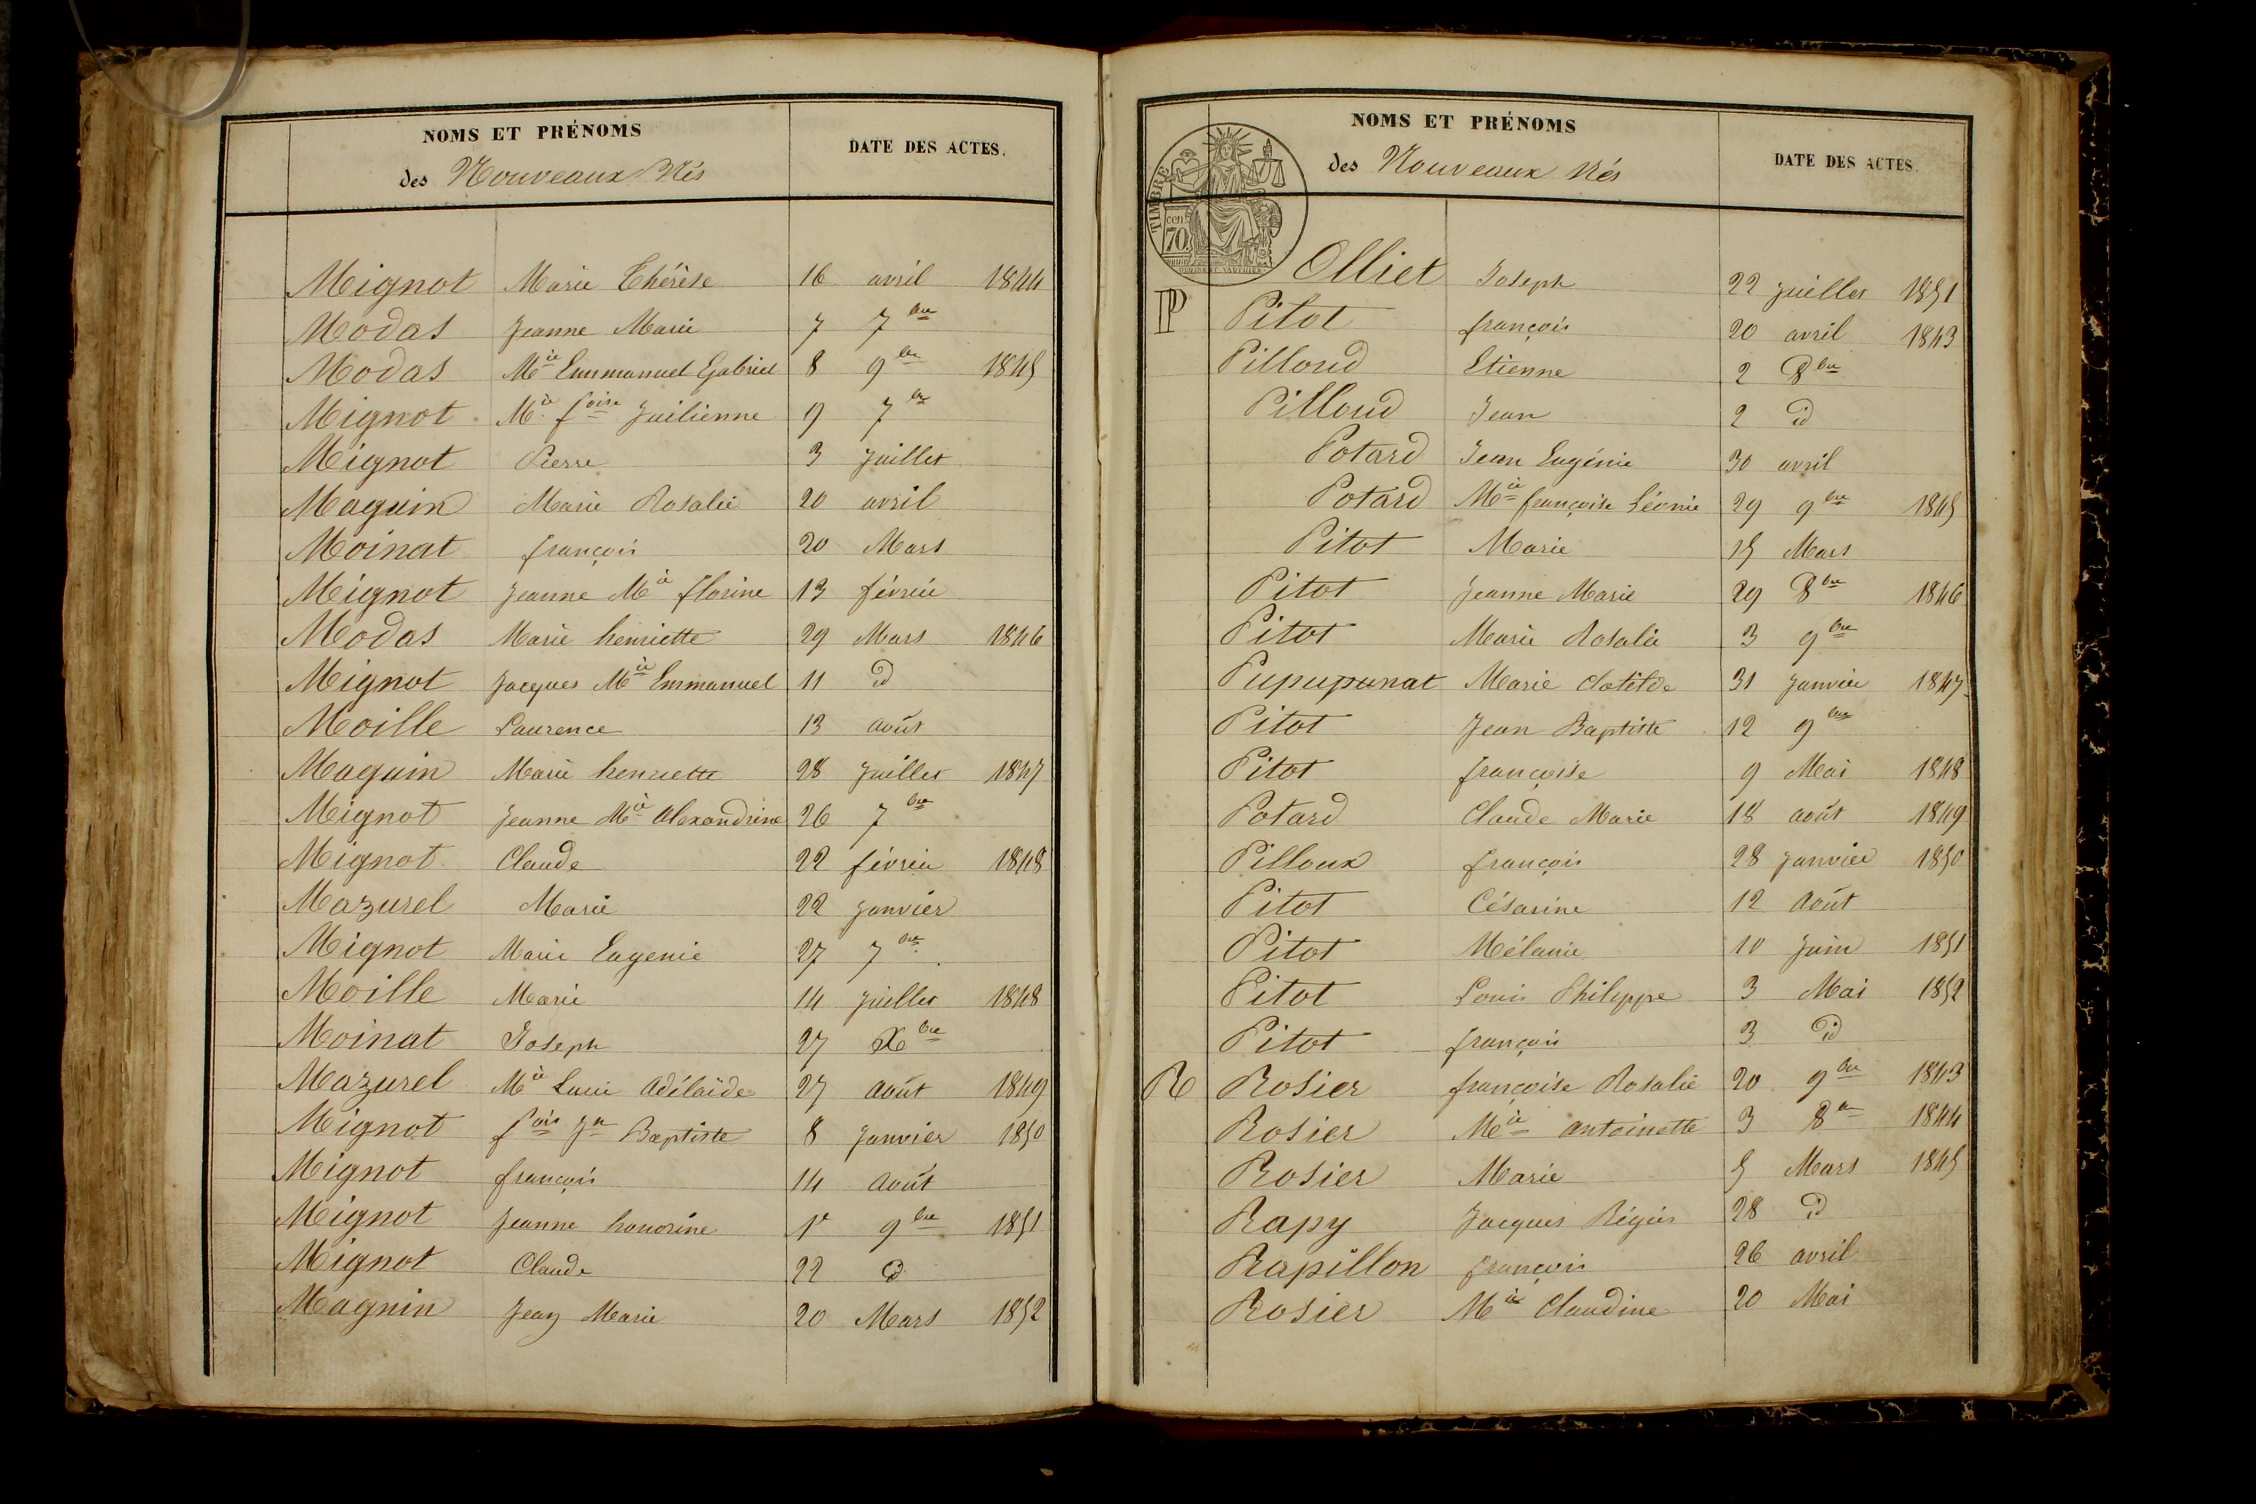 NOMS ET PRÉNOMS
des Nouveaux Nés
DATE DES ACTES.
Mignot Marie Thérèse 16 avril 1844
Modas Jeanne Marie 7 7bre
Modas Mie Emmanuel Gabriel 8 9bre 1845
Mignot Mie foise Juilienne 9 7bre
Mignot Pierre 3 Juillet
Magnin Marie Rosalie 20 avril
Moinat françois 20 Mars
Mignot Jeanne Mie florine 13 février
Modas Marie henriette 29 Mars 1846
Mignot Jacques Mie Emmanuel 11 id
Moille Laurence 13 août
Magnin Marie henriette 28 Juillet 1847
Mignot Jeanne Mie Alexandrine 26 7bre
Mignot Claude 22 février 1848
Mazurel Marie 22 Janvier
Mignot Marie Eugenie 27 7bre
Moille Marie 14 Juillet 1848
Moinat Joseph 27 Xbre
Mazurel Mie Lucie Adélaïde 27 Août 1849
Mignot fois Jn Baptiste 8 Janvier 1850
Mignot françois 14 Août
Mignot Jeanne honorine 1e 9bre 1851
Mignot Claude 22 id
Magnin Jean Marie 20 Mars 1852
NOMS ET PRÉNOMS
des Nouveaux Nés
DATE DES ACTES.
TIMBRE
cent
70
Olliet Joseph 22 Juillet 1851
P Pitot françois 20 avril 1843
Pilloud Etienne 2 8bre
Pilloud Jean 2 id
Potard Jean Eugénie 30 avril
Potard Mie françoise Léonie 29 9bre 1845
Pitot Marie 15 Mars
Pitot Jeanne Marie 29 8bre 1846
Pitot Marie Rosalie 3 9bre
Pupupunat Marie Clotilde 31 Janvier 1847
Pitot Jean Baptiste 12 9bre
Pitot françoise 9 Mai 1848
Potard Claude Marie 18 août 1849
Pilloux françois 28 Janvier 1850
Pitot Césarine 12 Août
Pitot Mélanie 10 Juin 1851
Pitot Louis Philippe 3 Mai 1852
Pitot françois 3 id
R Rosier françoise Rosalie 20 9bre 1843
Rosier Mie Antoinette 3 8re 1844
Rosier Marie 5 Mars 1845
Rapy Jacques Régis 28 id
Rapillon françois 26 avril
Rosier Mie Claudine 20 Mai